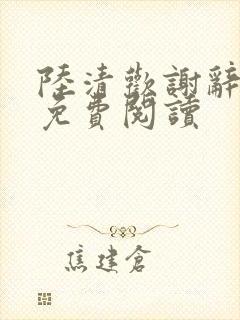 陸清歡謝辭
免費閱讀
焦建倉